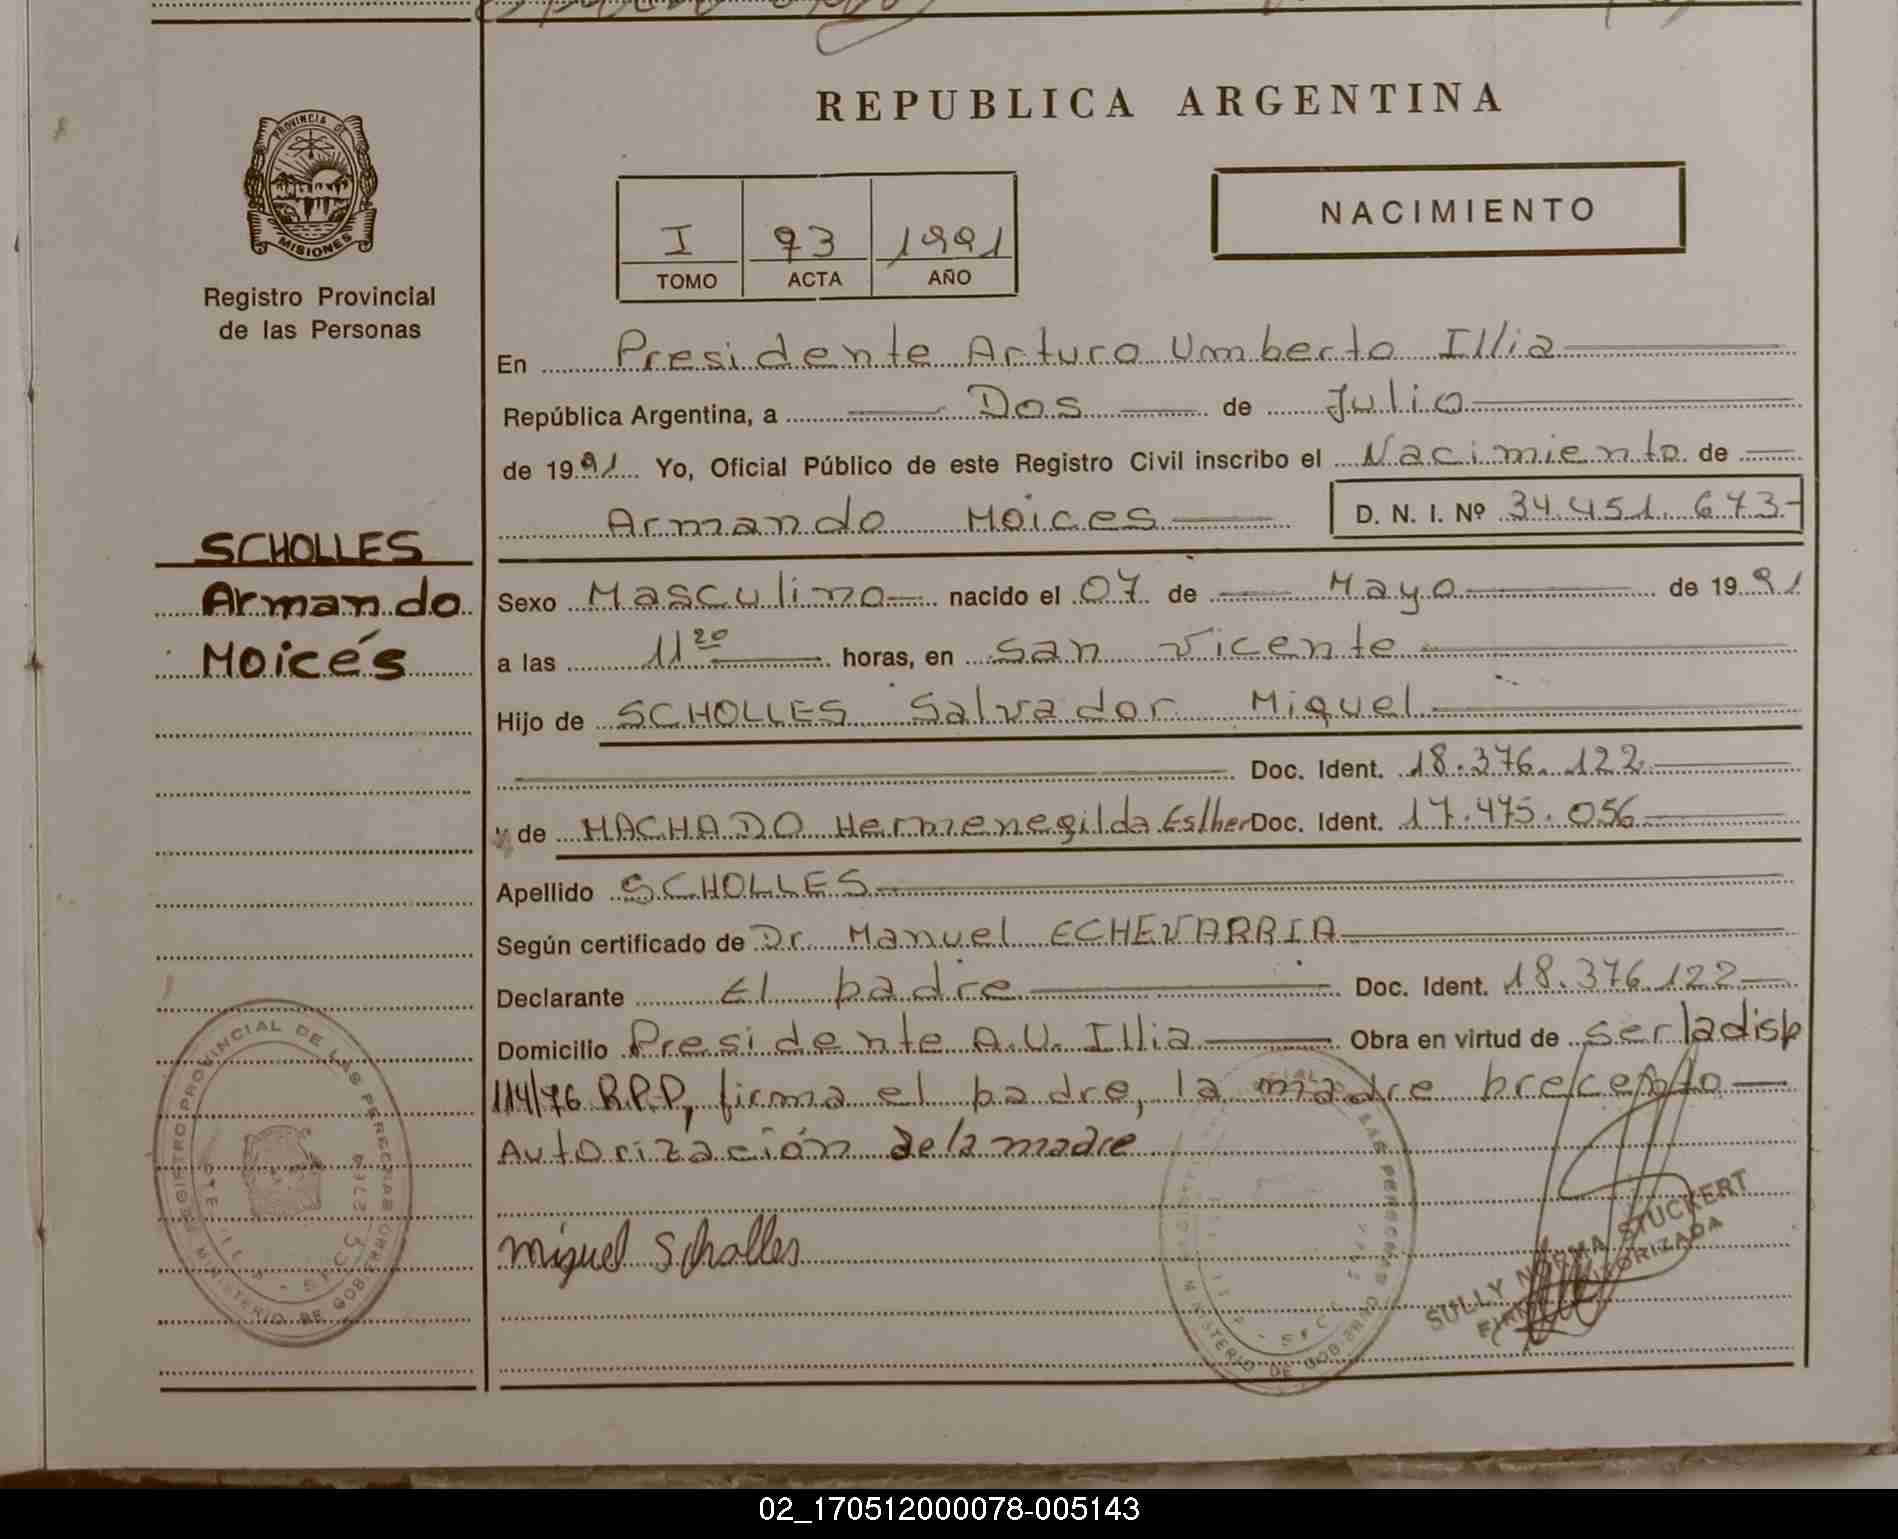 REPUBLICA ARGENTINA
PROVINCIA DE
MISIONES
Registro Provincial
de las Personas
I 93 1991
TOMO ACTA AÑO
NACIMIENTO
En Presidente Arturo Umberto Illia
República Argentina, a Dos de Julio
de 1991 Yo, Oficial Público de este Registro Civil inscribo el Nacimiento de
Armando Moices D. N. I. Nº 34.451.673
SCHOLLES
Armando
Moicés
Sexo Masculino nacido el 07 de Mayo de 1991
a las 11 20 horas, en San Vicente
Hijo de SCHOLLES Salvador Miguel
Doc. Ident. 18.376.122
y de MACHADO Hermenegilda Esther Doc. Ident. 17.475.056
Apellido SCHOLLES
Según certificado de Dr. Manuel ECHEVARRIA
Declarante El padre Doc. Ident. 18.376.122
Domicilio Presidente A.U. Illia Obra en virtud de ser la disp
114/76 R.P.P, firma el padre, la madre precento
Autorización de la madre
Miguel Scholles
REGISTRO PROVINCIAL DE LAS PERSONAS
MINISTERIO DE GOBIERNO
LAS PERSONAS
MINISTERIO DE GOBIERNO
SULLY NORMA STUCKERT
FIRMA AUTORIZADA
02_170512000078-005143